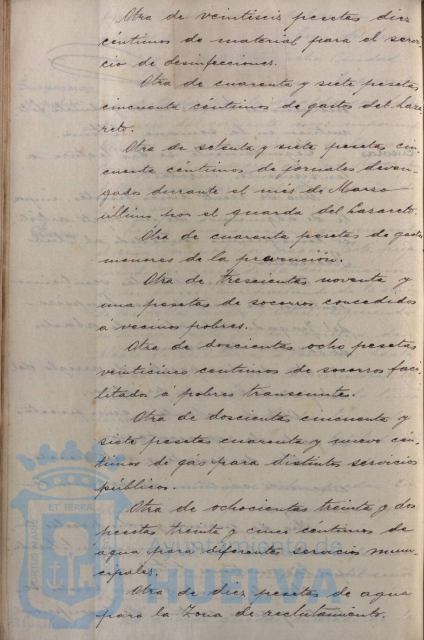 Otra de veintiseis pesetas diez
céntimos de material para el servi-
cio de desinfecciones.
Otra de cuarenta y siete pesetas
cincuenta céntimos de gastos del Laza-
reto.
Otra de setenta y siete pesetas cin-
cuenta céntimos de jornales deven-
gados durante el mes de Marzo
último por el guarda del Lazareto.
Otra de cuarenta pesetas de gastos
menores de la prevención.
Otra de trescientas noventa y
una pesetas de socorros concedidos
á vecinos pobres.
Otra de doscientas ocho pesetas
veinticinco centimos de socorros faci-
litados á pobres transeuntes.
Otra de doscientas cincuenta y
siete pesetas cuarenta y nueve cén-
timos de gas para distintos servicios
públicos.
Otra de ochocientas treinta y dos
pesetas treinta y cinco centimos de
agua para diferentes servicios muni-
cipales.
Otra de diez pesetas de agua
para la Zona de reclutamiento.
Ayuntamiento de
HUELVA